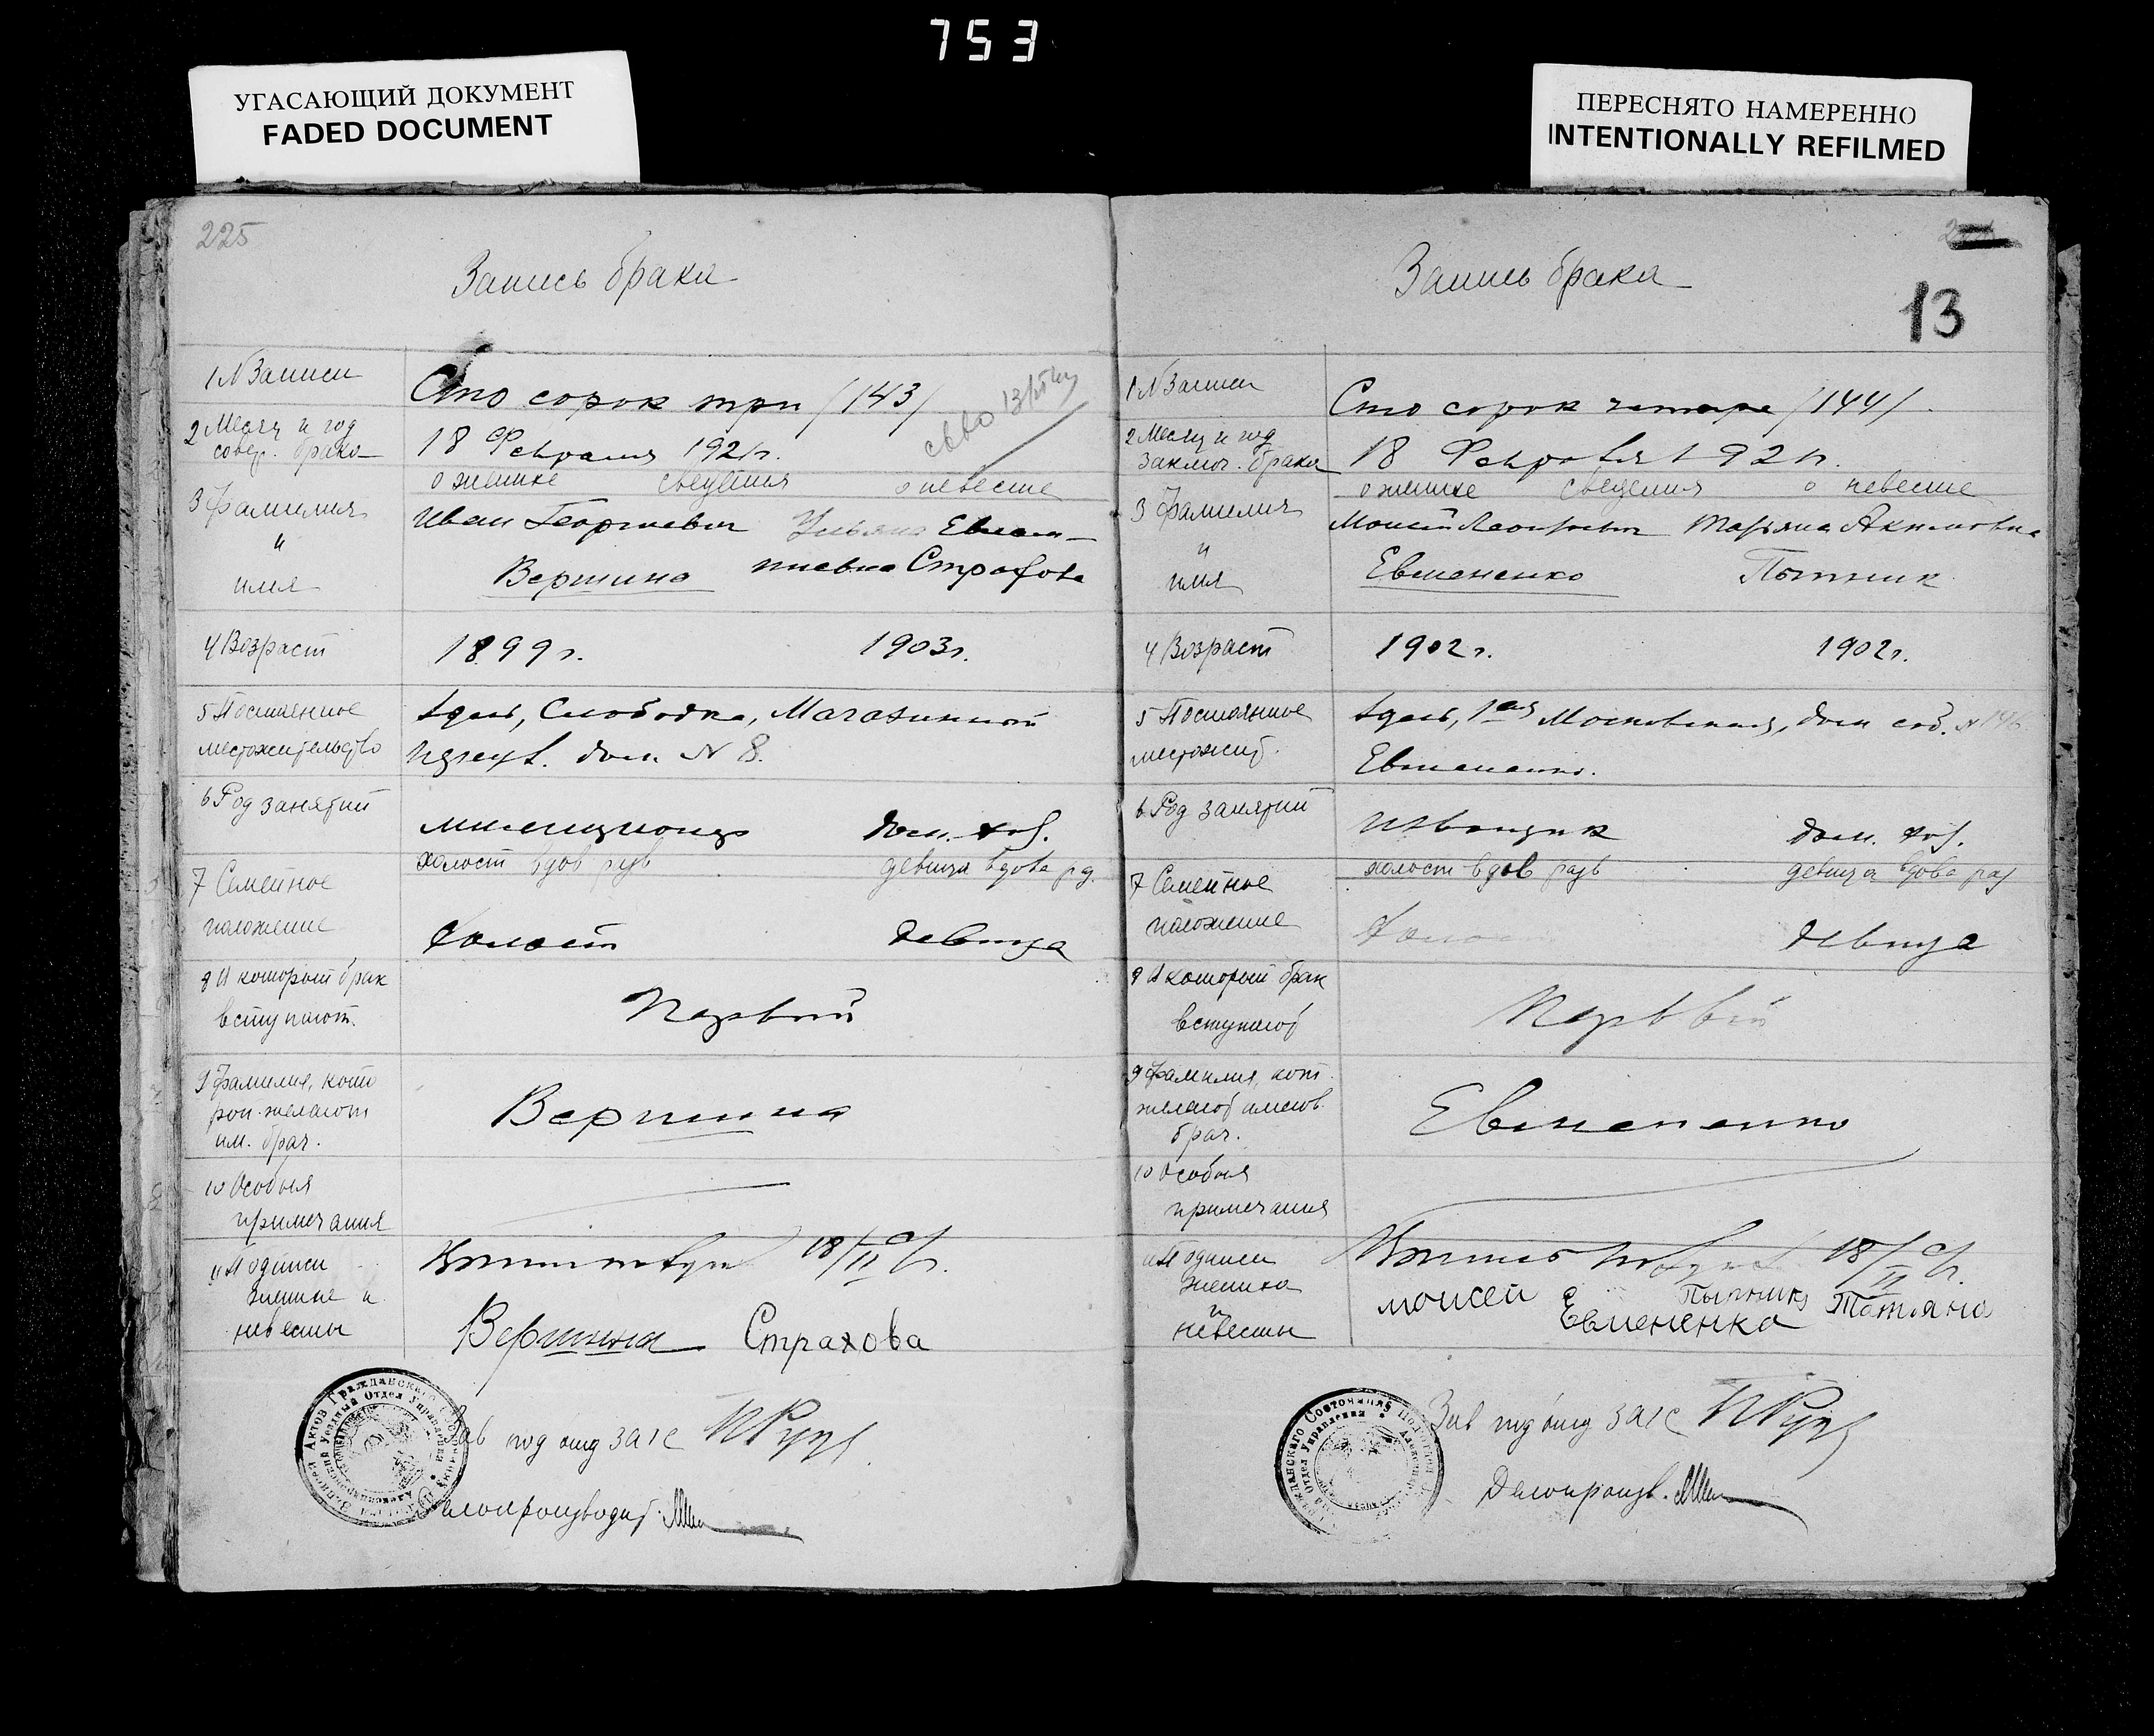 753
УГАСАЮЩИЙ ДОКУМЕНТ
FADED DOCUMENT
ПЕРЕСНЯТО НАМЕРЕННО
INTENTIONALLY REFILMED
225
Запись брака
1 № Записи
Сто сорок три /143/
2 Месяц и год
совер. брака
18 Февраля 1921г.
о женихе сведения о невесте
3 Фамилия
и
имя
Иван Георгиевич Ульяна Евлам-
Вершина пиевна Страхова
4 Возраст
1899 г. 1903г.
5 Постоянное
местожительство
Здесь, Слободка, Магазинный
переул. дом № 8.
6 Род занятий
милиционер дом. хоз.
7 Семейное
положение
холост вдов разв девица вдова рз.
Холост Девица
8 В который брак
вступают.
Первый
9 Фамилия, кото
рой желают
им. брач.
Вершина
10 Особыя
примечания
11 Подписи
жениха и
невесты
18/II
Вершина Страхова
Зав под отд ЗАГС
Делопроизводит.
13
Запись брака
1 № Записи
Сто сорок четыре /144/
2 Месяц и год
заключ. брака
18 Февраля 1921г.
о женихе сведения о невесте
3 Фамилия
и
имя
Моисей Леонтьевич Татьяна Акимовна
Евмененко
4 Возраст
1902 г. 1902г.
5 Постоянное
местожит.
Здесь, 1ая Московская, дом соб. №
Евмененко.
6 Род занятий
Извощик дом. хоз.
7 Семейное
положение
холост вдов разв девица вдова раз
Холост Девица
8 В который брак
вступают
Первый
9 Фамилия, кот.
желают именов.
брач.
Евмененко
10 Особыя
примечания
11 Подписи
жениха
и
невесты
18/II
моисей Татьяна
Евмененка
Зав под отд ЗАГС
Делопроизв.